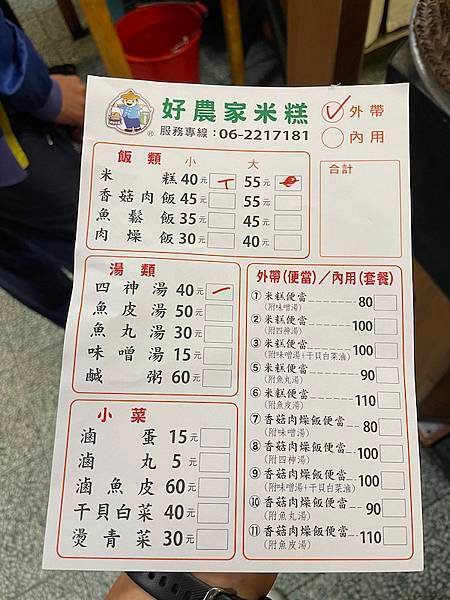 好農家米糕
服務專線：06-2217181
外帶
內用
飯類 小 大
米糕 40元 55元
香菇肉飯 45元 55元
魚鬆飯 35元 45元
肉燥飯 30元 40元
合計
湯類
四神湯 40元
魚皮湯 50元
魚丸湯 30元
味噌湯 15元
鹹粥 60元
小菜
滷蛋 15元
滷丸 5元
滷魚皮 60元
干貝白菜 40元
燙青菜 30元
外帶(便當)/內用(套餐)
①米糕便當 80
(附味噌湯)
②米糕便當 100
(附四神湯)
③米糕便當 100
(附味噌湯+干貝白菜滷)
⑤米糕便當 90
(附魚丸湯)
⑥米糕便當 110
(附魚皮湯)
⑦香菇肉燥飯便當 80
(附味噌湯)
⑧香菇肉燥飯便當 100
(附四神湯)
⑨香菇肉燥飯便當 100
(附味噌湯+干貝白菜滷)
⑩香菇肉燥飯便當 90
(附魚丸湯)
⑪香菇肉燥飯便當 110
(附魚皮湯)